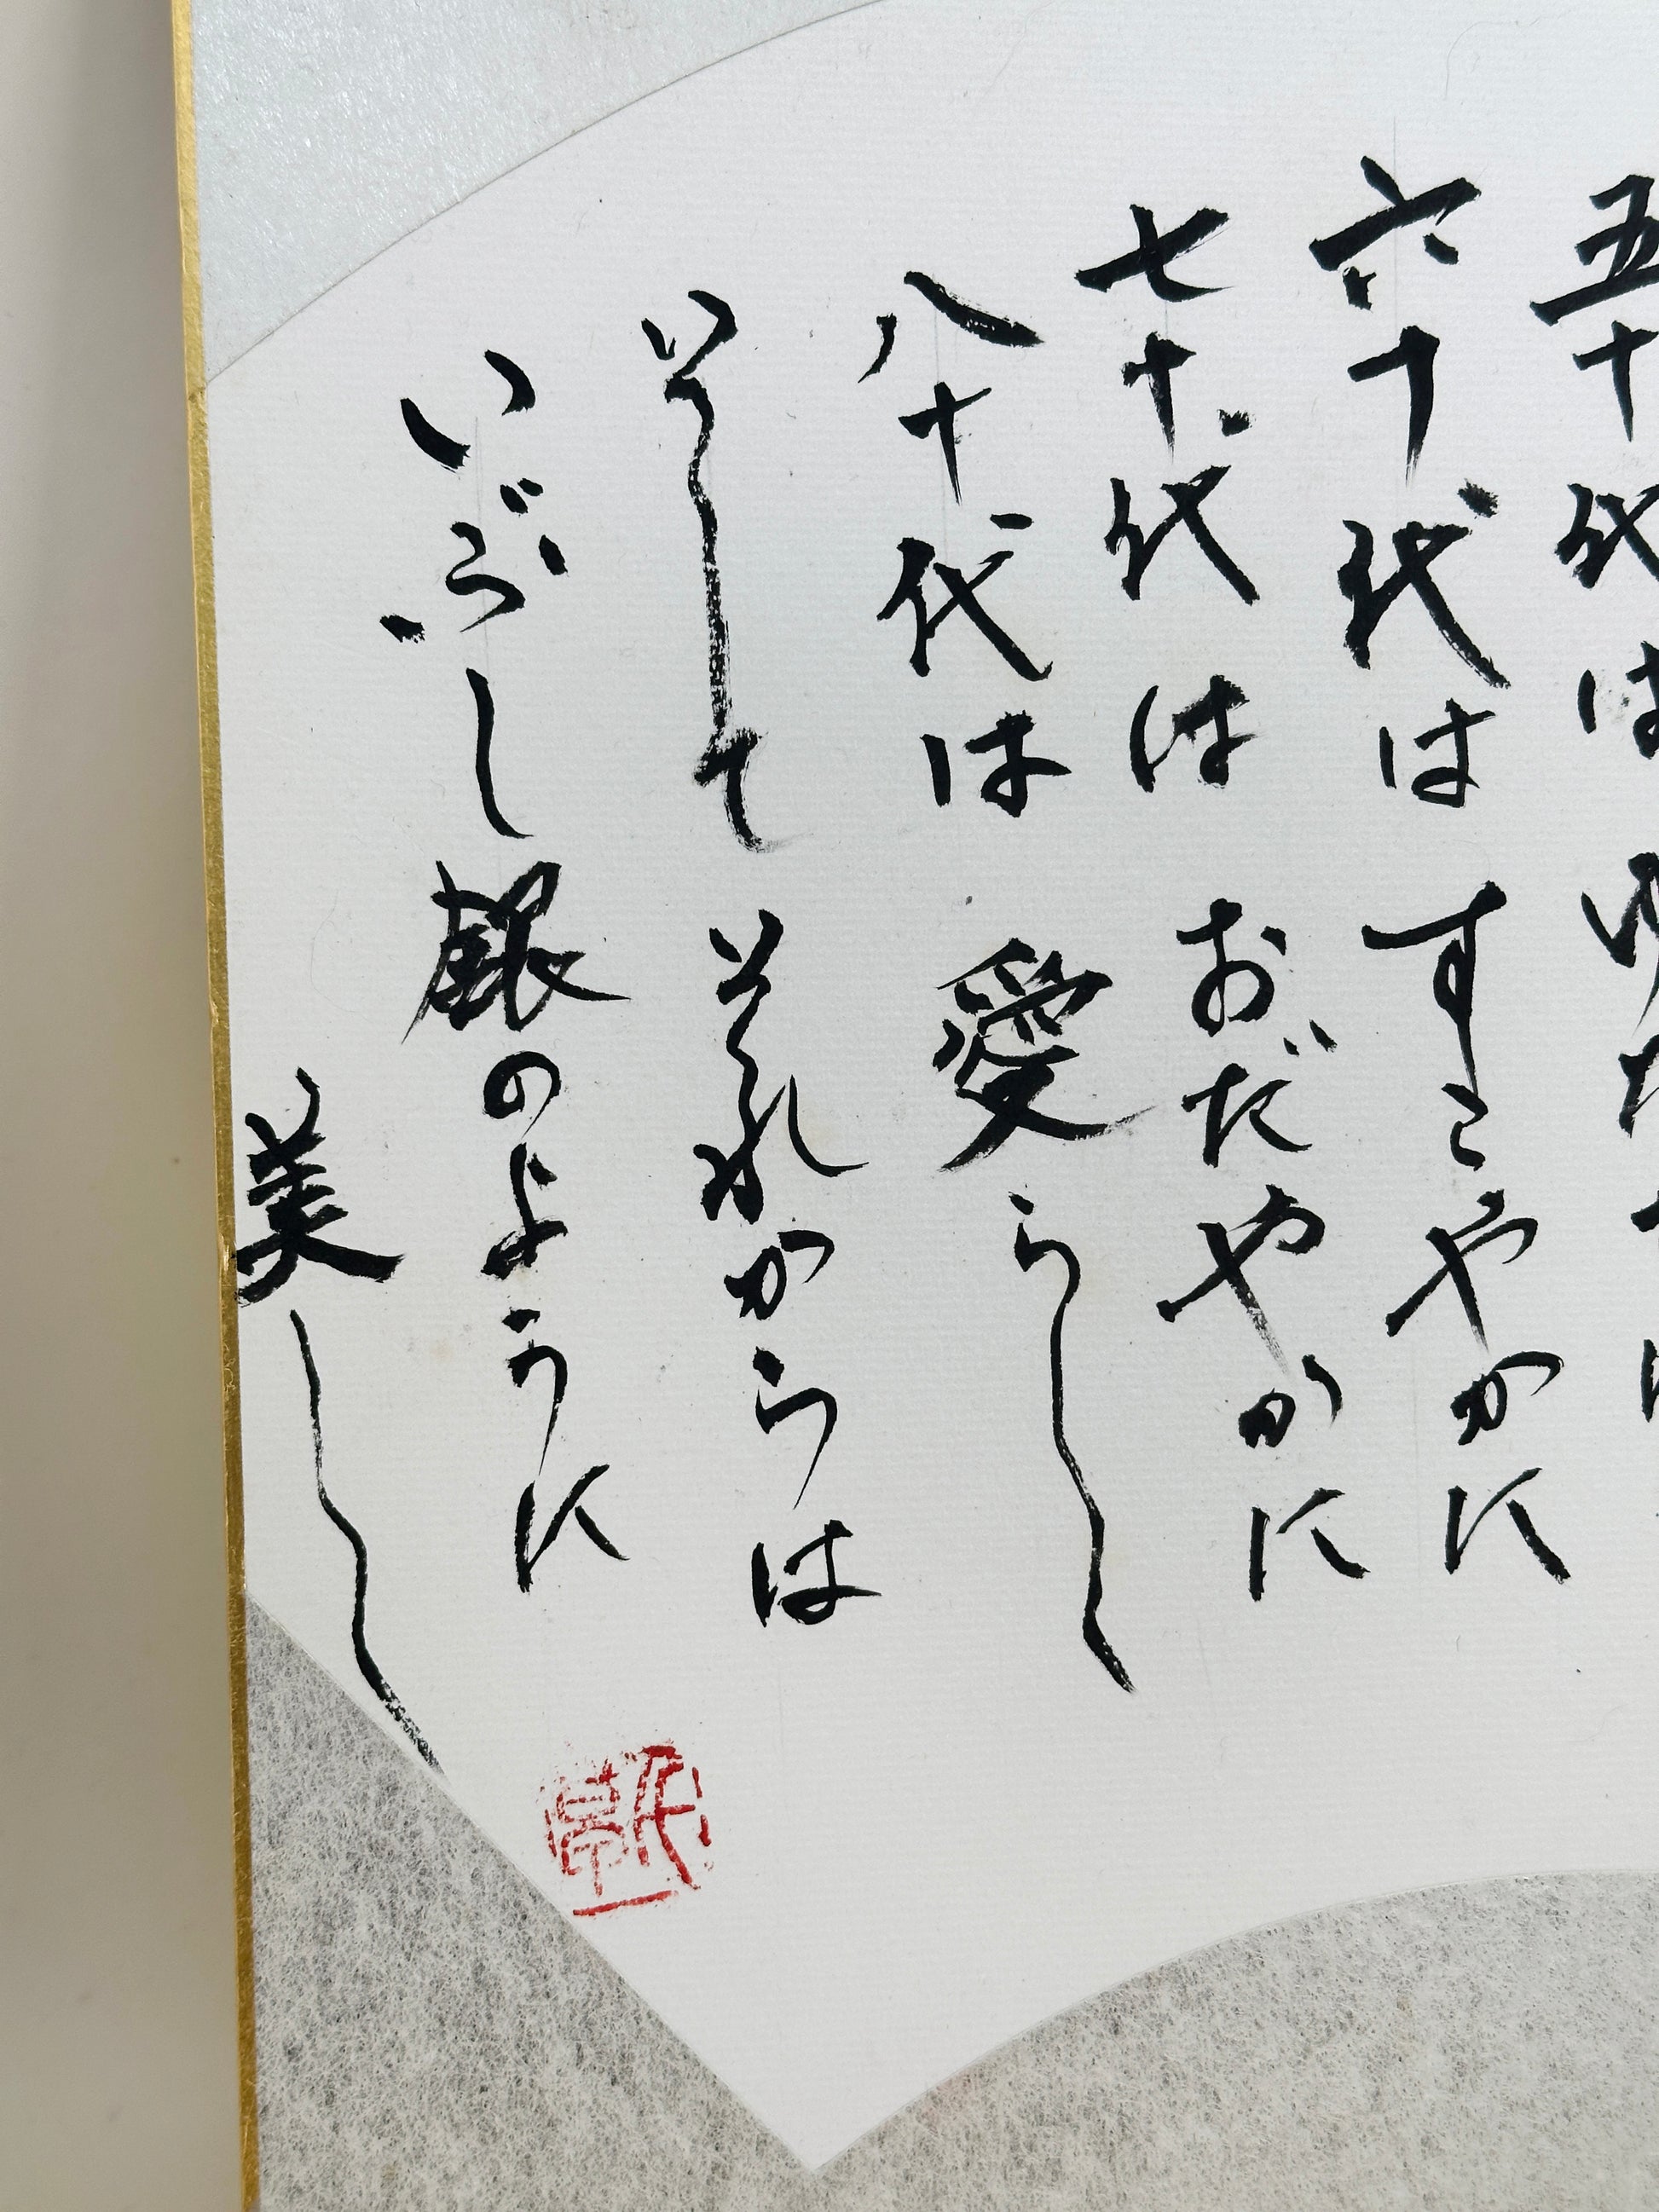 五十代は ゆたかに
六十代は すこやかに
七十代は おだやかに
八十代は 愛らし
そして それからは
いぶし銀のように
美し